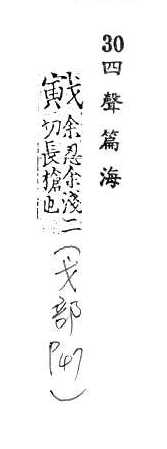 30 四聲篇海
戭余忍余淺二切長槍也(戈部P47)